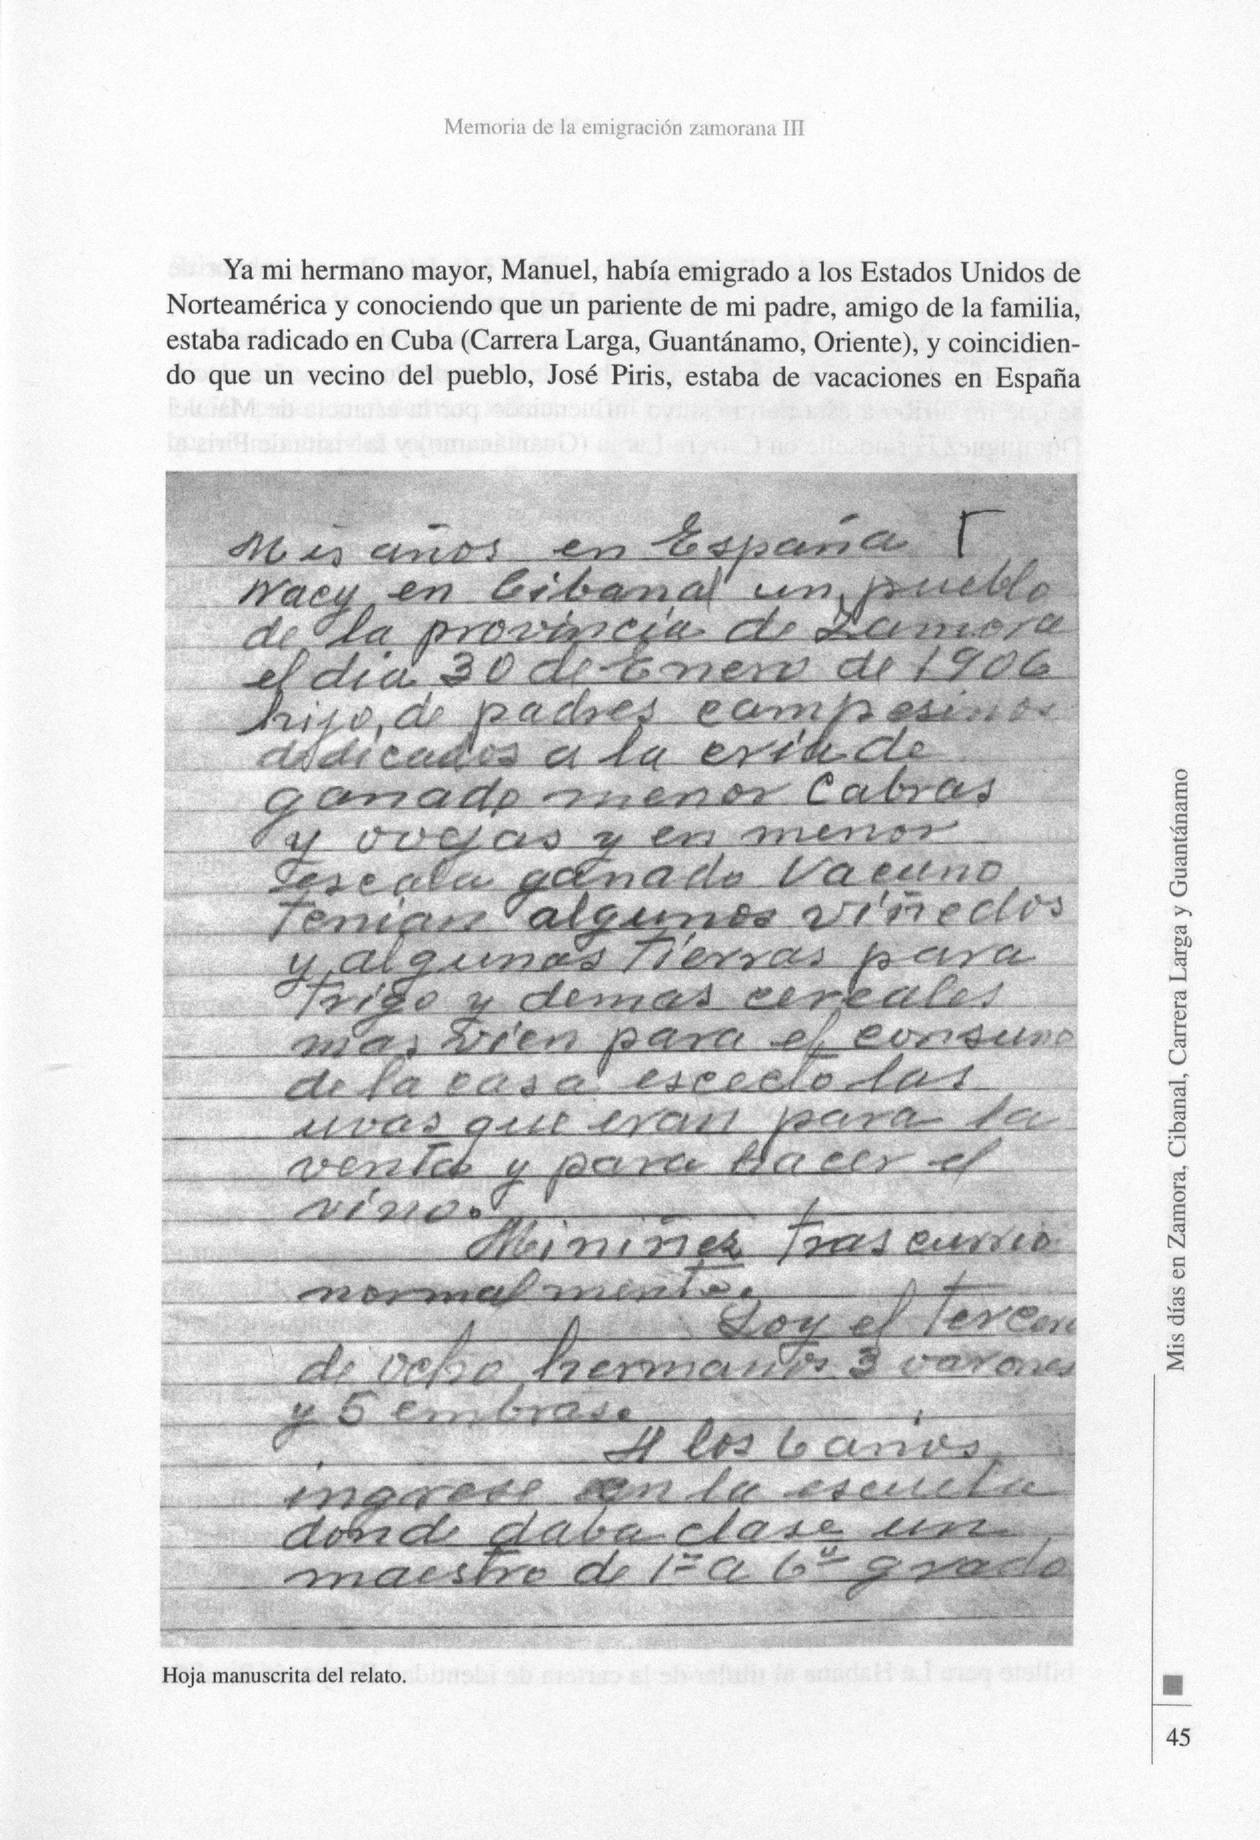 Memoria de la emigración zamorana III
Ya mi hermano mayor, Manuel, había emigrado a los Estados Unidos de
Norteamérica y conociendo que un pariente de mi padre, amigo de la familia,
estaba radicado en Cuba (Carrera Larga, Guantánamo, Oriente), y coincidien-
do que un vecino del pueblo, José Piris, estaba de vacaciones en España
Mis años en España
Nacy en Cibanal un pueblo
de la provincia de Zamora
el dia 30 de Enero de 1906
hijo, de padres campesinos
dedicados a la cria de
ganado menor Cabras
y ovejas y en menor
escala ganado Vacuno
Tenian algunos viñedos
y algunas Tierras para
Trigo y demas cereales
mas vien para el consumo
de la casa escecto las
uvas que eran para la
venta y para hacer el
vino.
Mi niñez trascurrio
normalmente.
Soy el tercero
de ocho hermanos 3 varones
y 5 embras.
A los 6 años
ingrese en la escuela
donde daba clase un
maestro de 1º a 6º grado
Hoja manuscrita del relato.
Mis días en Zamora, Cibanal, Carrera Larga y Guantánamo
45